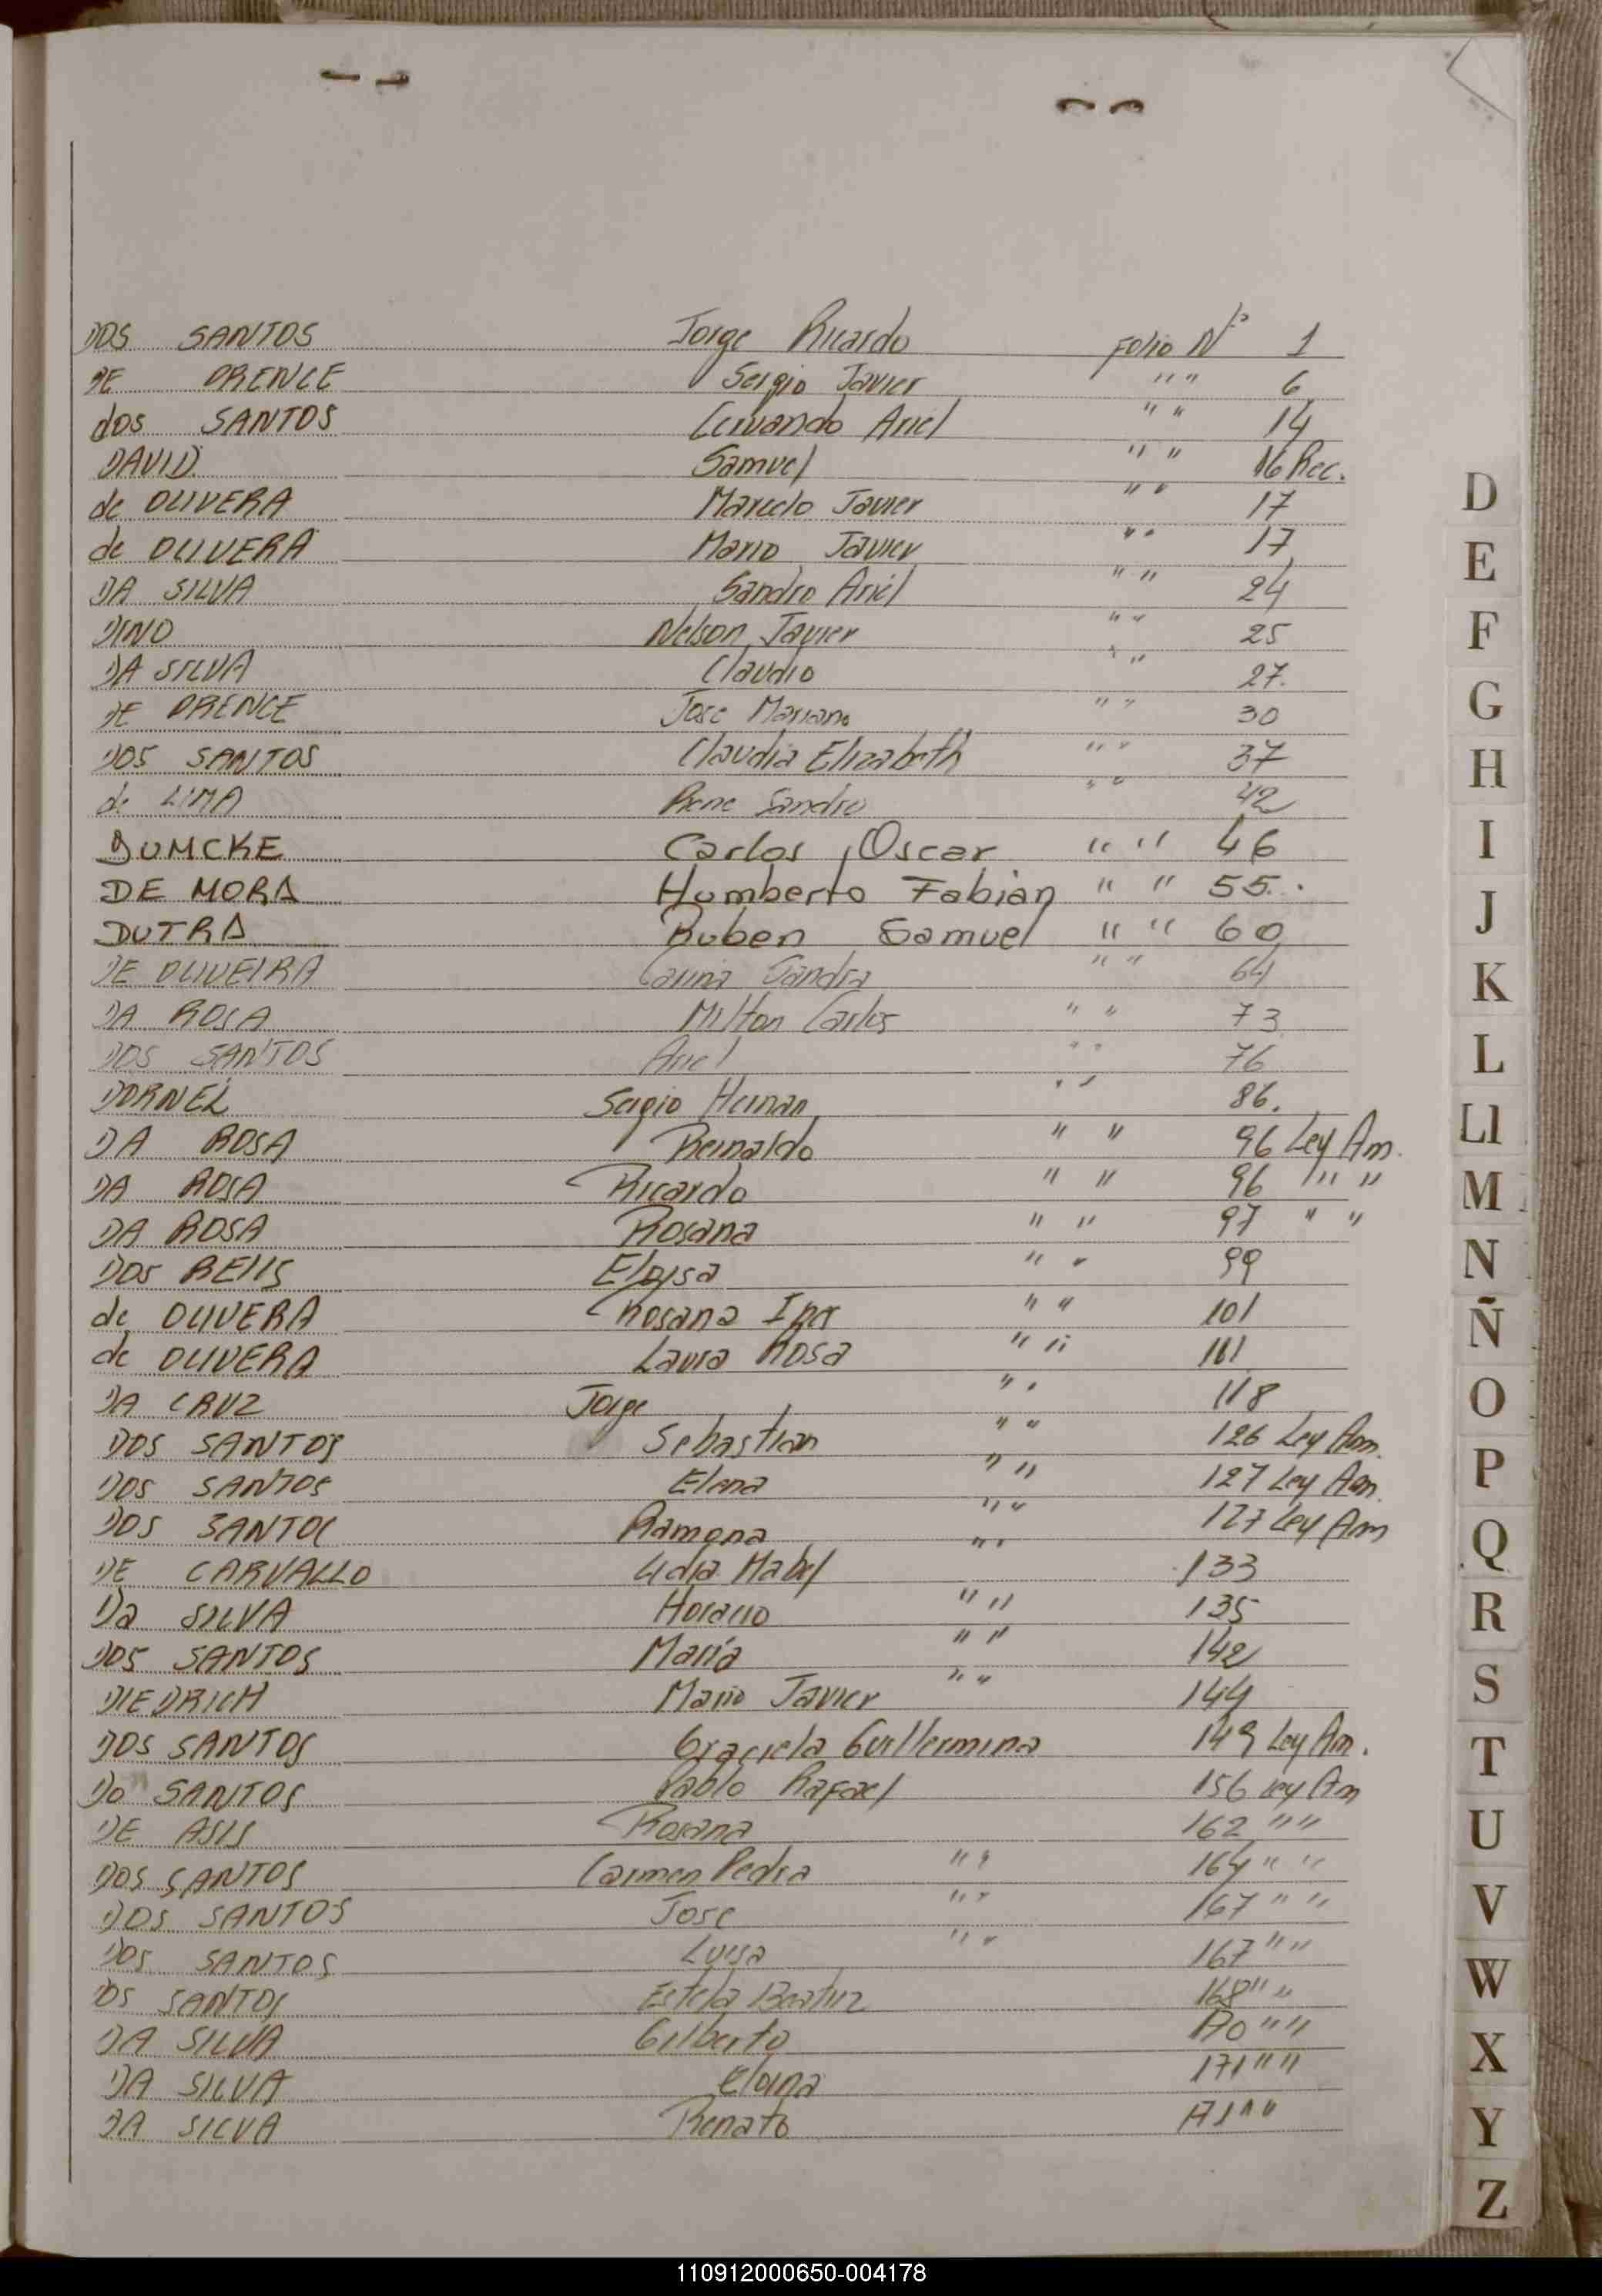 DOS SANTOS Jorge Ricardo Folio Nº 1
DE ORENCE Sergio Javier " " 6
dos SANTOS Ariel " " 14
DAVID. Samuel " " 16 Rec.
de OLIVERA Marcelo Javier " " 17
de OLIVERA Mario Javier " " 17
DA SILVA Sandro Ariel " " 24
DINO Nelson Javier " " 25
DA SILVA Claudio " " 27.
DE ORENCE Jose Mariano " " 30
DOS SANTOS Claudia Elizabeth " " 37
de LIMA Rene Sandro " " 42
DUMCKE Carlos Oscar " " 46
DE MORA Humberto Fabian " " 55.
DUTRA Ruben Samuel " " 60
DE OLIVEIRA Carina Sandra " " 64
DA ROSA Milton Carlos " " 73
DOS SANTOS Ariel " " 76
DORNEL Sergio Hernan " " 86.
DA ROSA Reinaldo " " 96 Ley Am.
DA ROSA Ricardo " " 96 " "
DA ROSA Rosana " " 97 " "
DOS REIIS Eloisa " " 99
de OLIVERA Rosana " " 101
de OLIVERA Laura Rosa " "
DA CRUZ Jorge " " 118
DOS SANTOS Sebastian " " 126 Ley Am.
DOS SANTOS Elena " " 127 Ley Am.
DOS SANTOS Ramona " " 127 Ley Am
DE CARVALLO Lidia Mabel " " 133
Da SILVA Horacio " " 135
DOS SANTOS María " " 142
DIEDRICH Mario Javier " " 144
DOS SANTOS Graciela Guillermina 149 Ley Am.
Do SANTOS Pablo Rafael 156 Ley Am
DE ASIS Rosana 162 " "
DOS SANTOS Carmen Pedra " " 164 " "
DOS SANTOS Jose " " 167 " "
DOS SANTOS Luisa " " 167 " "
DS SANTOS Estela Beatriz 168 " "
DA SILVA Gilberto 170 " "
DA SILVA 171 " "
DA SILVA Renato 171 " "
D
E
F
G
H
I
J
K
L
Ll
M
N
Ñ
O
P
Q
R
S
T
U
V
W
X
Y
Z
110912000650-004178